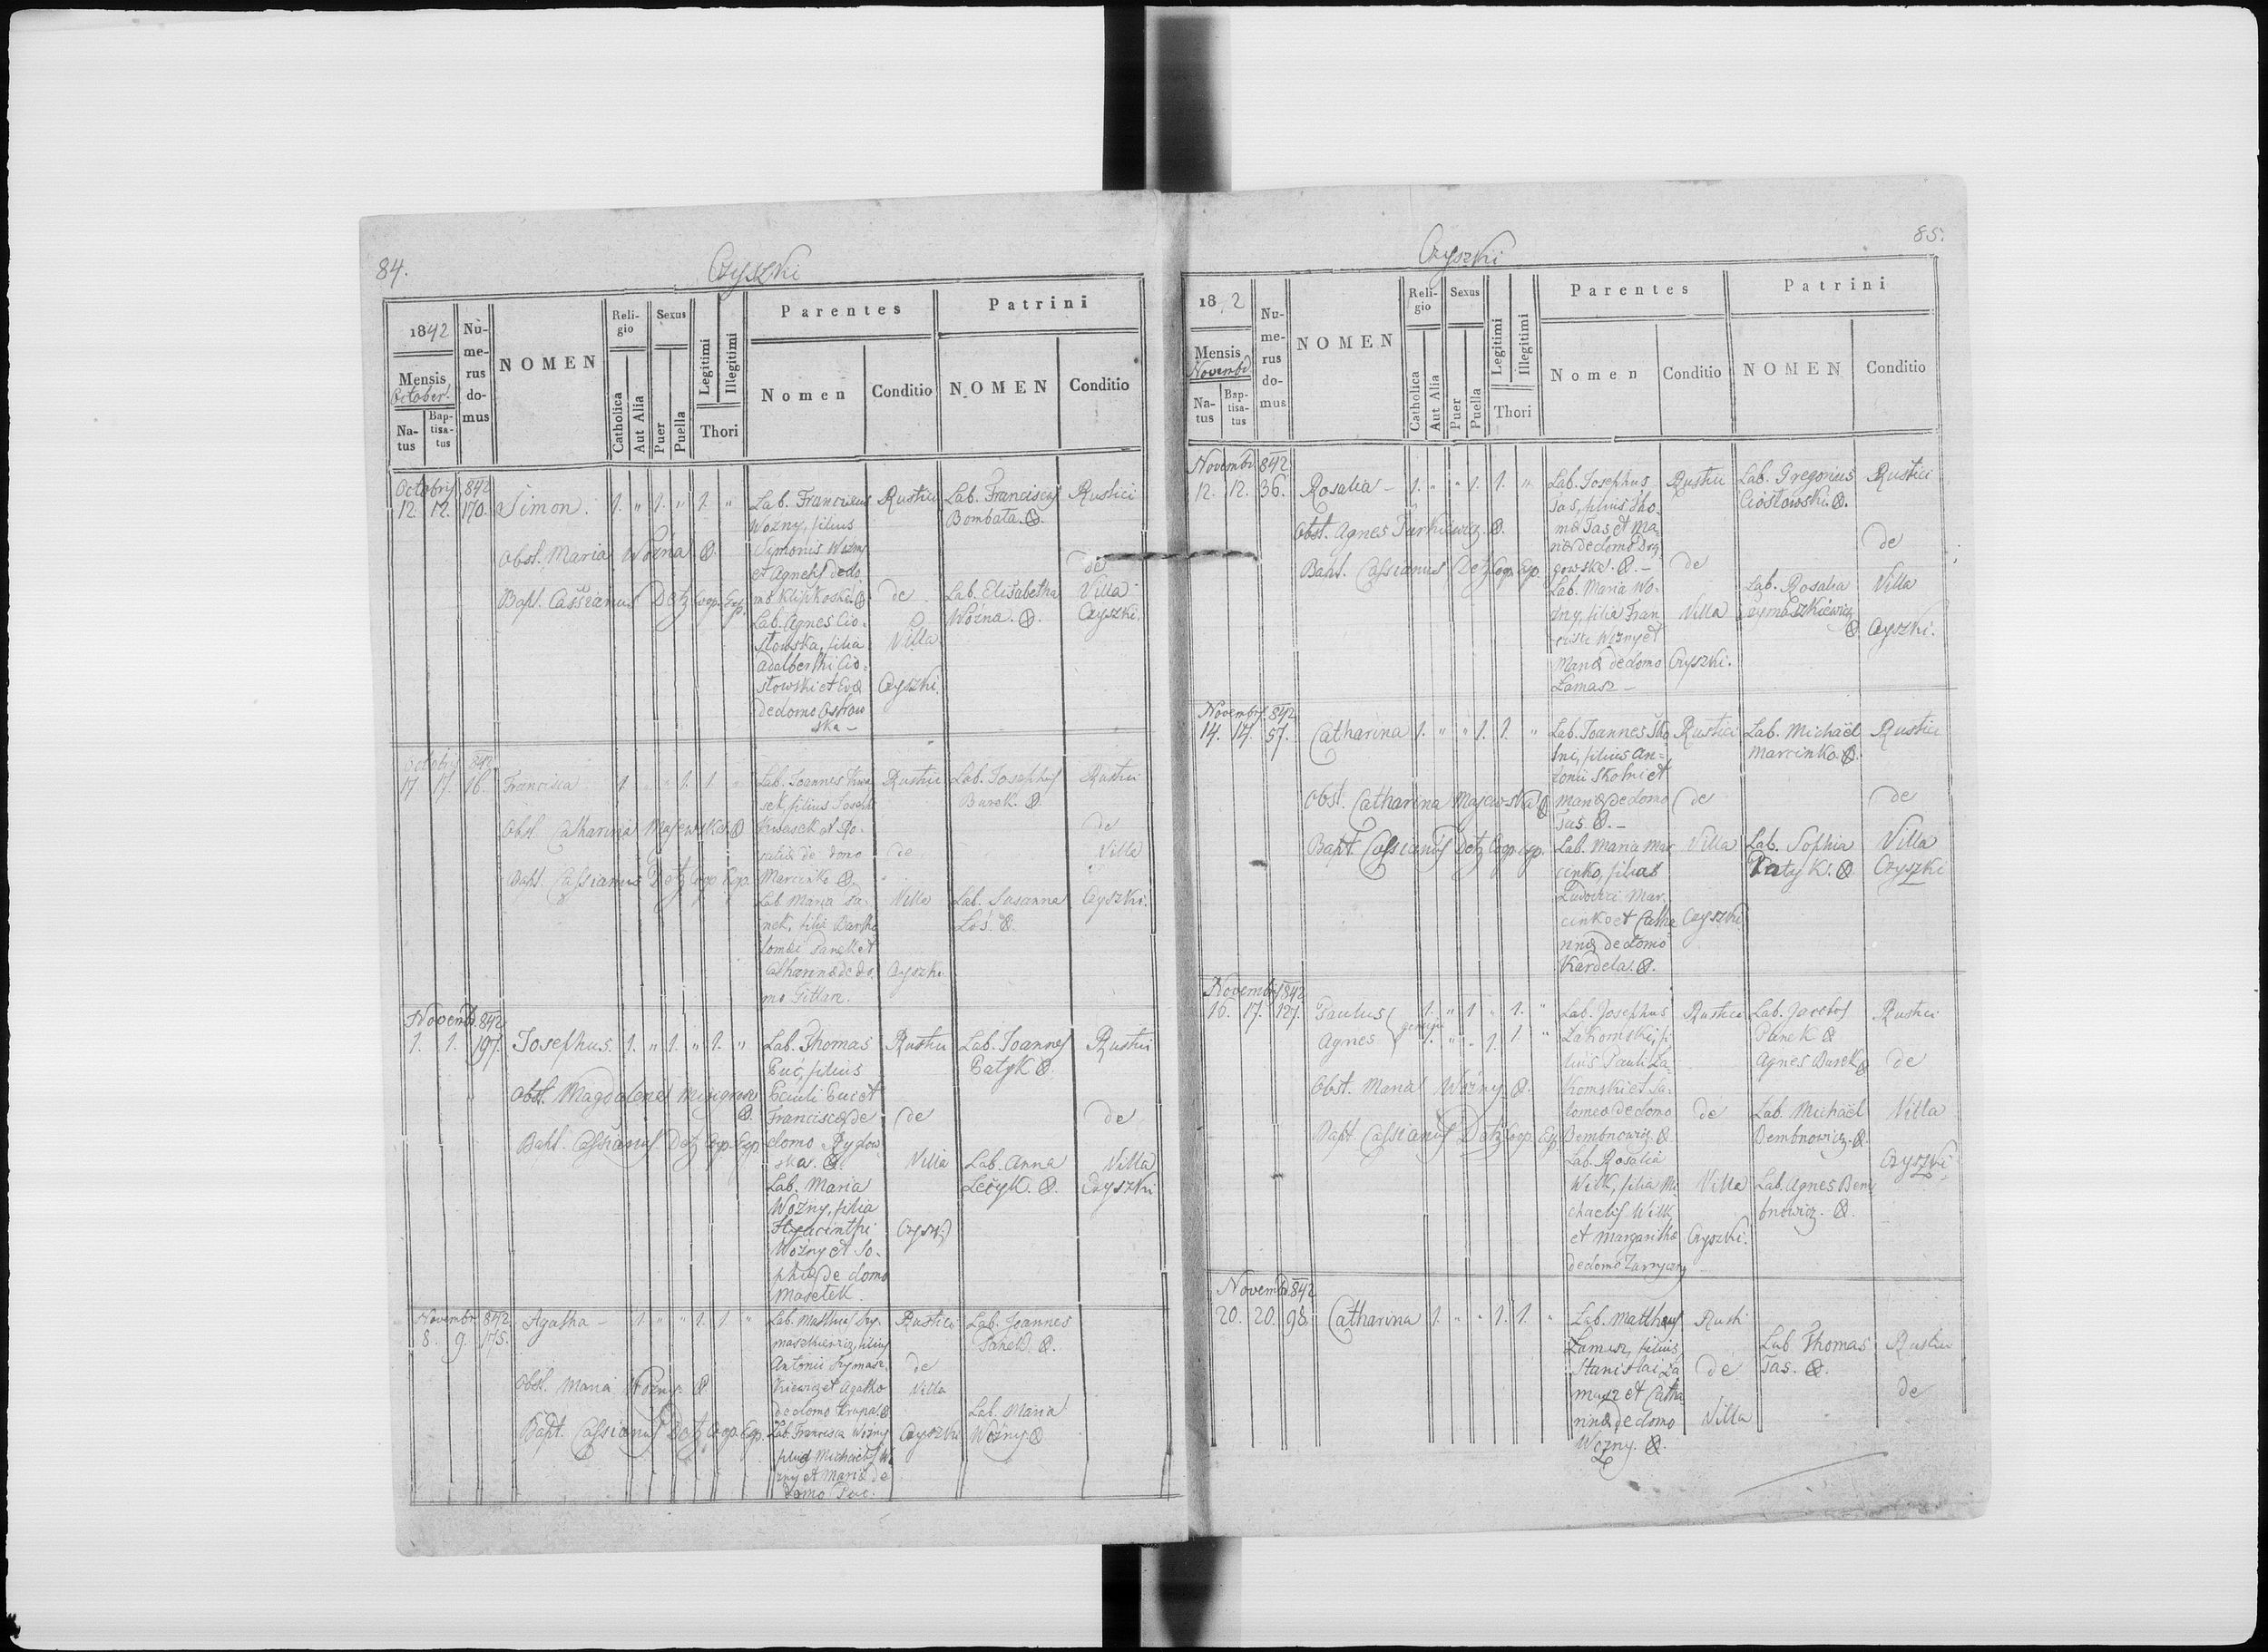 84.
Czyszki
1842
Mensis
October.
Natus
Baptisatus
Numerus domus
NOMEN
Religio
Catholica
Aut Alia
Sexus
Puer
Puella
Legitimi
Illegitimi
Thori
Parentes
Nomen
Conditio
Patrini
NOMEN
Conditio
Octobris 842
12. 12. 170. Simon. 1. " 1. " 1. "
Obst. Maria Woźna
Bapt. Cassianus Detz Coop. Exp.
Lab. Franciscus
Woźny, filius
Simonis Woźny
et Agnetis de do
Lab. Agnes Cio-
stowska, filia
Adalberthi Cio-
stowski et Evae
de domo Ostrow
ska
Rustici
de
Villa
Czyszki.
Lab. Franciscus
Bombata.
Lab. Elisabetha
Woźna.
Rustici
de
Villa
Czyszki.
Octobris 842
17 17. 16. Francisca 1. " " 1. 1. "
Obst. Catharina Majewska
Bapt. Cassianus Detz Coop. Exp.
Lab. Joannes Kwa
sek, filius Joseph
Kwasek et Ro-
salia de domo
Marcinko
Lab. Maria Pa-
nek, filia Bartho
lomaei Panek et
Catharinae de do-
mo
Rustici
de
Villa
Czyszki
Lab. Josephus
Burek.
Lab. Susanna
Łoś.
Rustici
de
Villa
Czyszki.
Novemb. 842
1. 1. 197. Josephus. 1. " 1. " 1. "
Obst. Magdalena
Bapt. Cassianus Detz Coop. Exp.
Lab. Thomas
filius
Franciscae de
domo
ska.
Lab. Maria
Woźny, filia
Hyacinthi
Woźny et So-
phiae de domo
Masełek.
Rustici
de
Villa
Czyszki
Lab. Joannes
Lab. Anna
Rustici
de
Villa
Czyszki
Novembr. 842
8. 9. 175. Agatha - 1. " " 1. 1. "
Obst. Maria Woźny
Bapt. Cassianus Detz Coop. Exp.
Lab. Mathias Szy-
maszkiewicz, filius
Antonii Szymasz-
kiewicz et Agatha
de domo Krupa.
Lab. Francisca Woźny
filia Michaelis Wo
zny et Maria de
domo Pac.
Rustici
de
Villa
Czyszki
Lab. Joannes
Lab. Maria
Woźny.
85.
Czyszki
18 2
Mensis
Novemb
Natus
Baptisatus
Numerus domus
NOMEN
Religio
Catholica
Aut Alia
Sexus
Puer
Puella
Legitimi
Illegitimi
Thori
Parentes
Nomen
Conditio
Patrini
NOMEN
Conditio
Novembr 842
12. 12. 36. Rosalia - 1. " " 1. 1. "
Obst. Agnes
Bapt. Cassianus Detz Coop. Exp.
Lab. Josephus
Tas, filius Tho-
mae Tas et Ma-
riae de domo
Lab. Maria Wo-
zny, filia Fran
cisci Woźny et
Mariae de domo
Łamasz -
Rustici
de
Villa
Czyszki.
Lab. Gregorius
Ciostowski.
Lab. Rosalia
Szymaszkiewicz
Rustici
de
Villa
Czyszki.
Novembris 842
14. 14. 57. Catharina 1. " " 1. 1. "
Obst. Catharina Majewska
Bapt. Cassianus Detz Coop. Exp.
Lab. Joannes Sko
lni, filius An-
tonii Skolni et
Mariae de domo
Tas. -
Lab. Maria Mar
cinko, filia
Ludovici Mar-
cinko et Catha
rinae de domo
Kardela.
Rustici
de
Villa
Czyszki
Lab. Michaël
Marcinko.
Lab. Sophia
Rustici
de
Villa
Czyszki
Novembris 842
16. 17. 127. Paulus 1. " 1 " 1. "
gemini
Agnes 1. " " 1. 1. "
Obst. Maria Woźny.
Bapt. Cassianus Detz Coop. Exp.
Lab. Josephus
Łakomski, fi
lius Pauli Ła-
komski et Sa-
lomea de domo
Dembnowicz.
Lab. Rosalia
Wilk, filia Mi
chaelis Wilk
et Margaritha
de domo
Rustici
de
Villa
Czyszki.
Lab. Jacobus
Panek
Agnes Burek
Lab. Michaël
Dembnowicz.
Lab. Agnes Dem
bnowicz.
Rustici
de
Villa
Czyszki
Novemb. 842
20. 20. 98. Catharina 1. " " 1. 1. "
Lab. Matthaeus
Łamasz, filius
Stanislai Ła
masz et Catha
rinae de domo
Woźny.
Rusti
de
Villa
Lab. Thomas
Tas.
Rustici
de